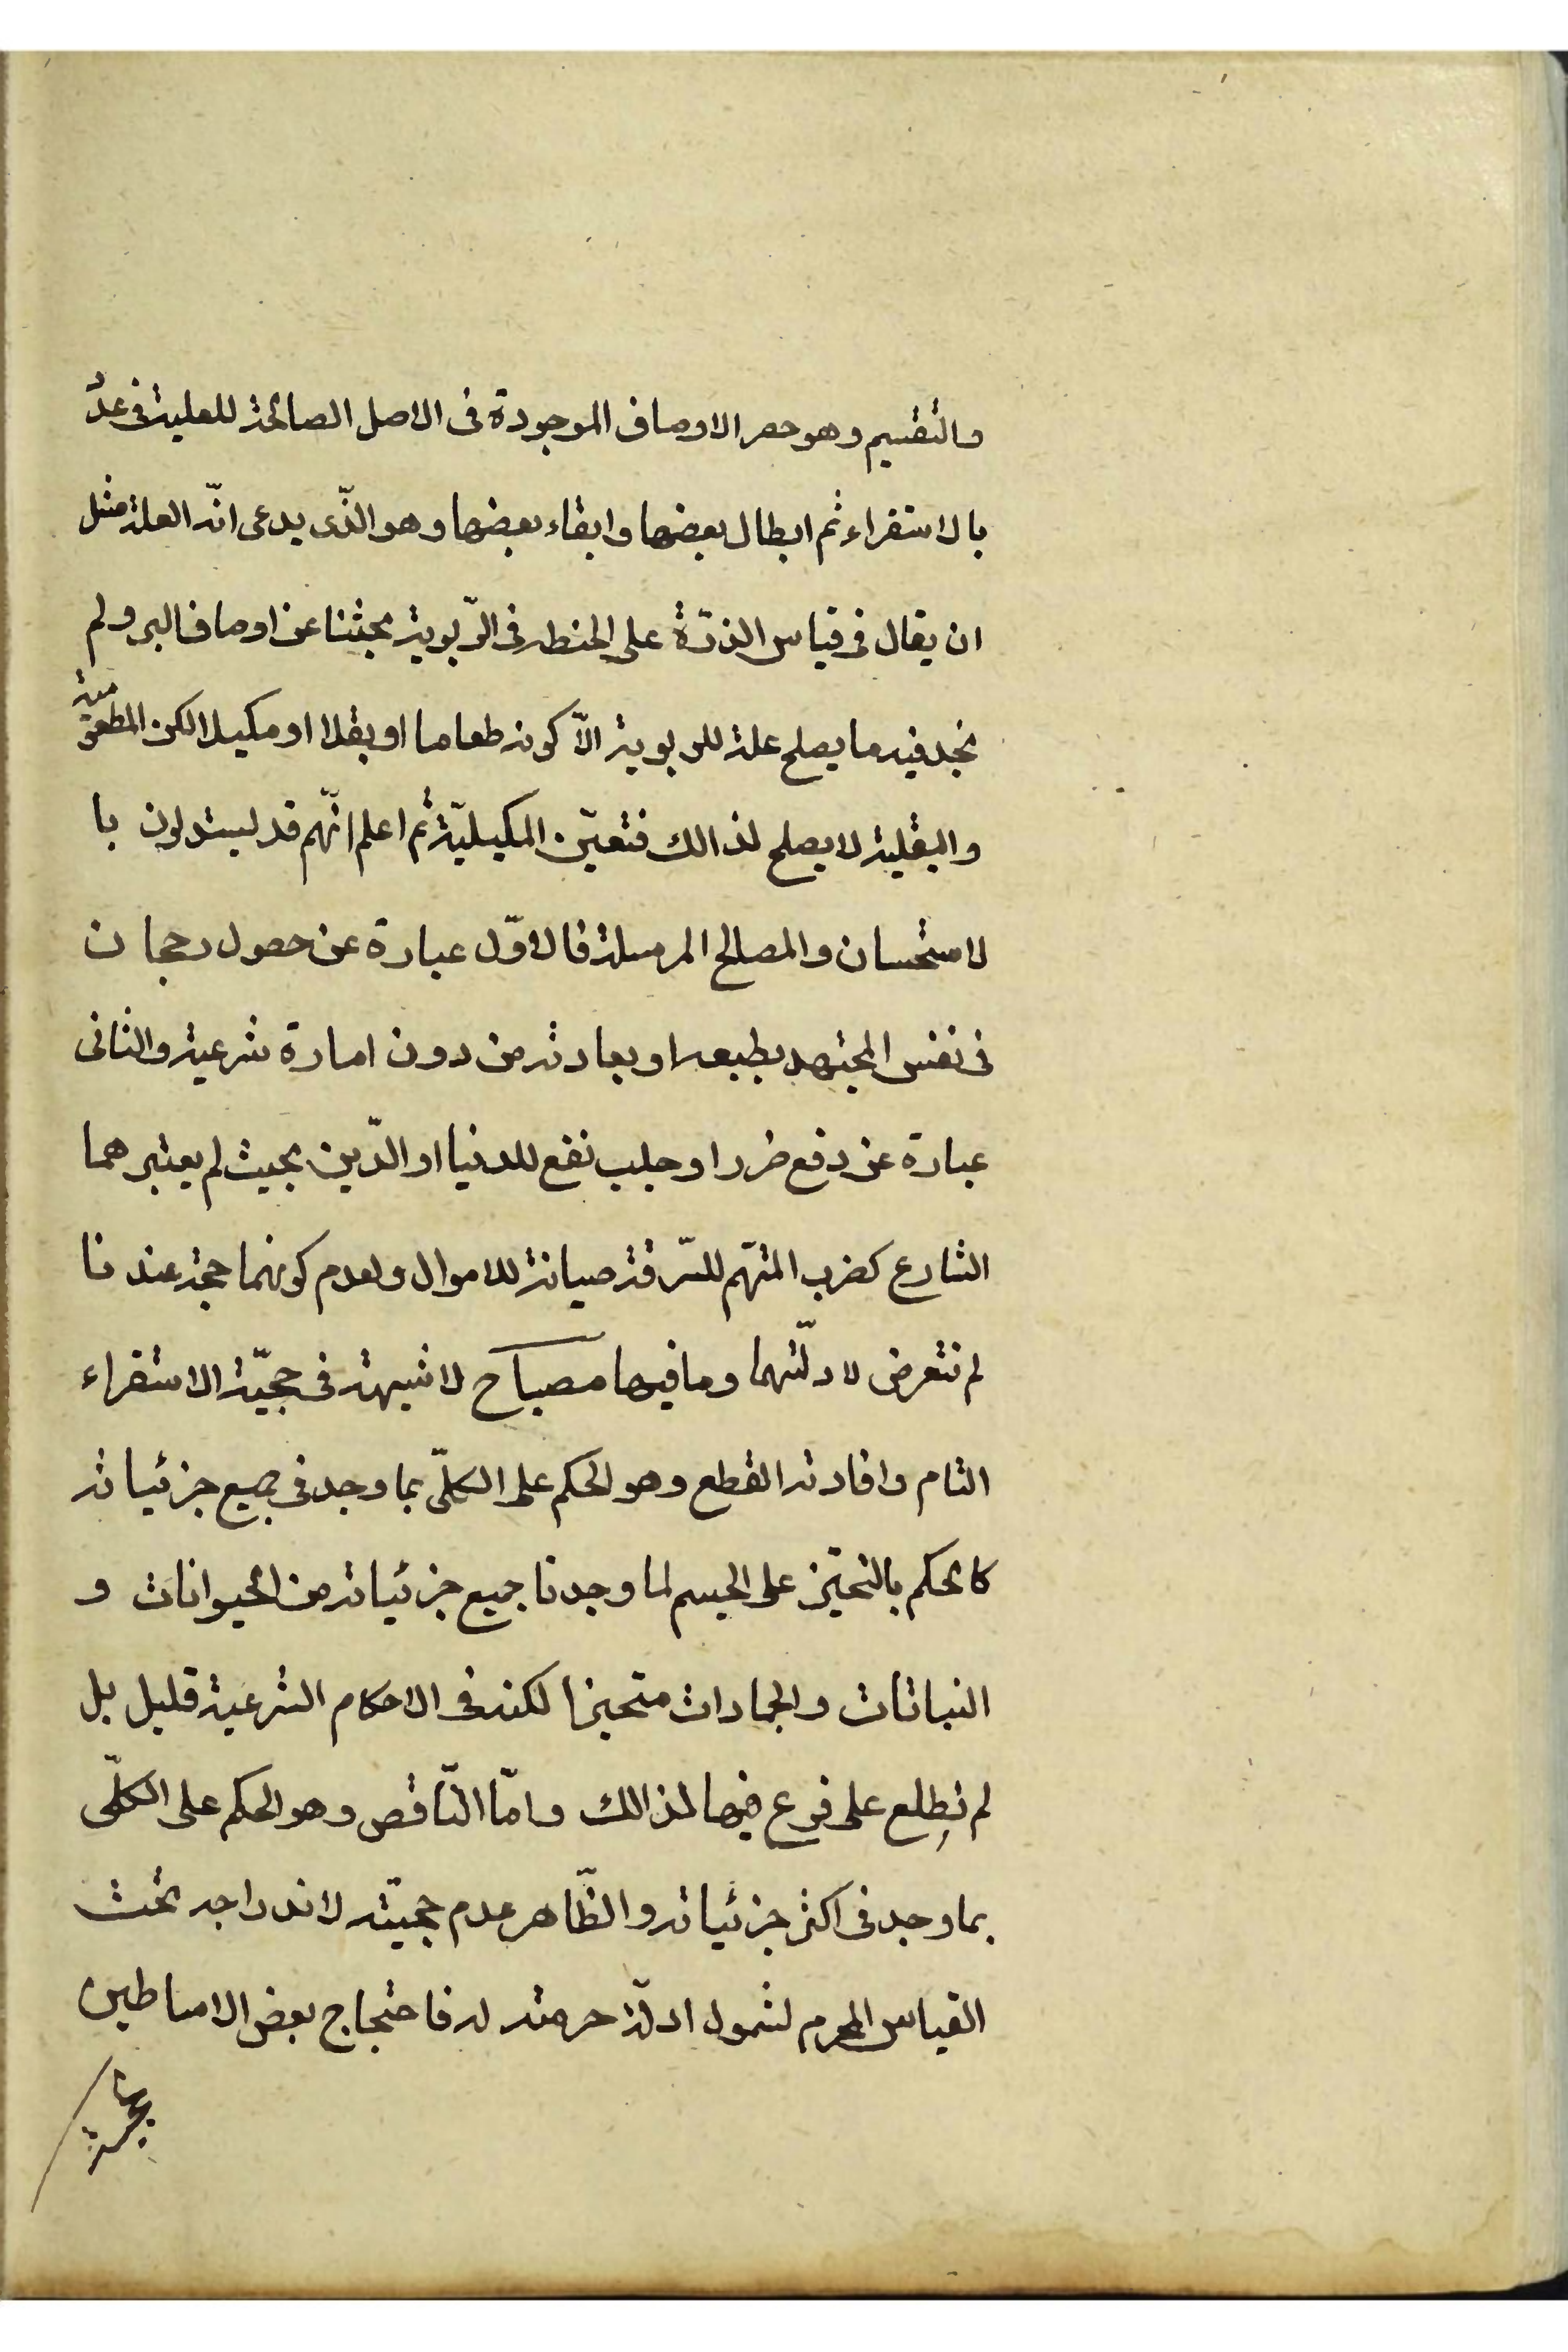 والتقسيم وهو حصر الاوصاف الموجودة فى الاصل الصالحة للعلية فى عدد
بالاستقراء ثم ابطال بعضها وابقاء بعضها وهو الذّى يدعى انّه العلة مثل
ان يقال فى قياس الذرّة على الحنطه فى الرّبوية بحثنا عن اوصاف البر ولم
نجد فيه ما يصلح علة للربوية الاّ كونه طعاما او بقلا او مكيلا لكن المطعومية
والبقلية لا يصلح لذالك فتعيّن المكيليّة ثم اعلم انّهم قد ليستدلون با
لاستحسان والمصالح المرسلة فالاوّل عبارة عن حصول رجحان
فى نفس المجتهد بطبعه او بعادته من دون امارة شرعية والثانى
عبارة عن دفع ضرر او جلب نفع للدنيا او الدّين بحيث لم يعتبرهما
الشارع كضرب المتهّم للسّرقة صيانة للاموال ولعدم كونهما حجة عندنا
لم نتعرض لادلّتهما وما فيها مصباح لا شبهة فى حجيّة الاستقراء
التام وافادته القطع وهو الحكم على الكلّى بما وجد فى جميع جزئياته
كالحكم بالتحيّز على الجسم لما وجدنا جميع جزئياته من الحيوانات و
النباتات والجمادات متحيزا لكنه فى الاحكام الشرعية قليل بل
لم نطلع على فرع فيها لذالك وامّا النّاقص وهو الحكم على الكلّى
بما وجد فى اكثر جزئياته والظّاهر عدم حجيّته لاندراجه تحت
القياس المحرم لشمول ادلّة حرمته له فاحتجاج بعض الاساطين